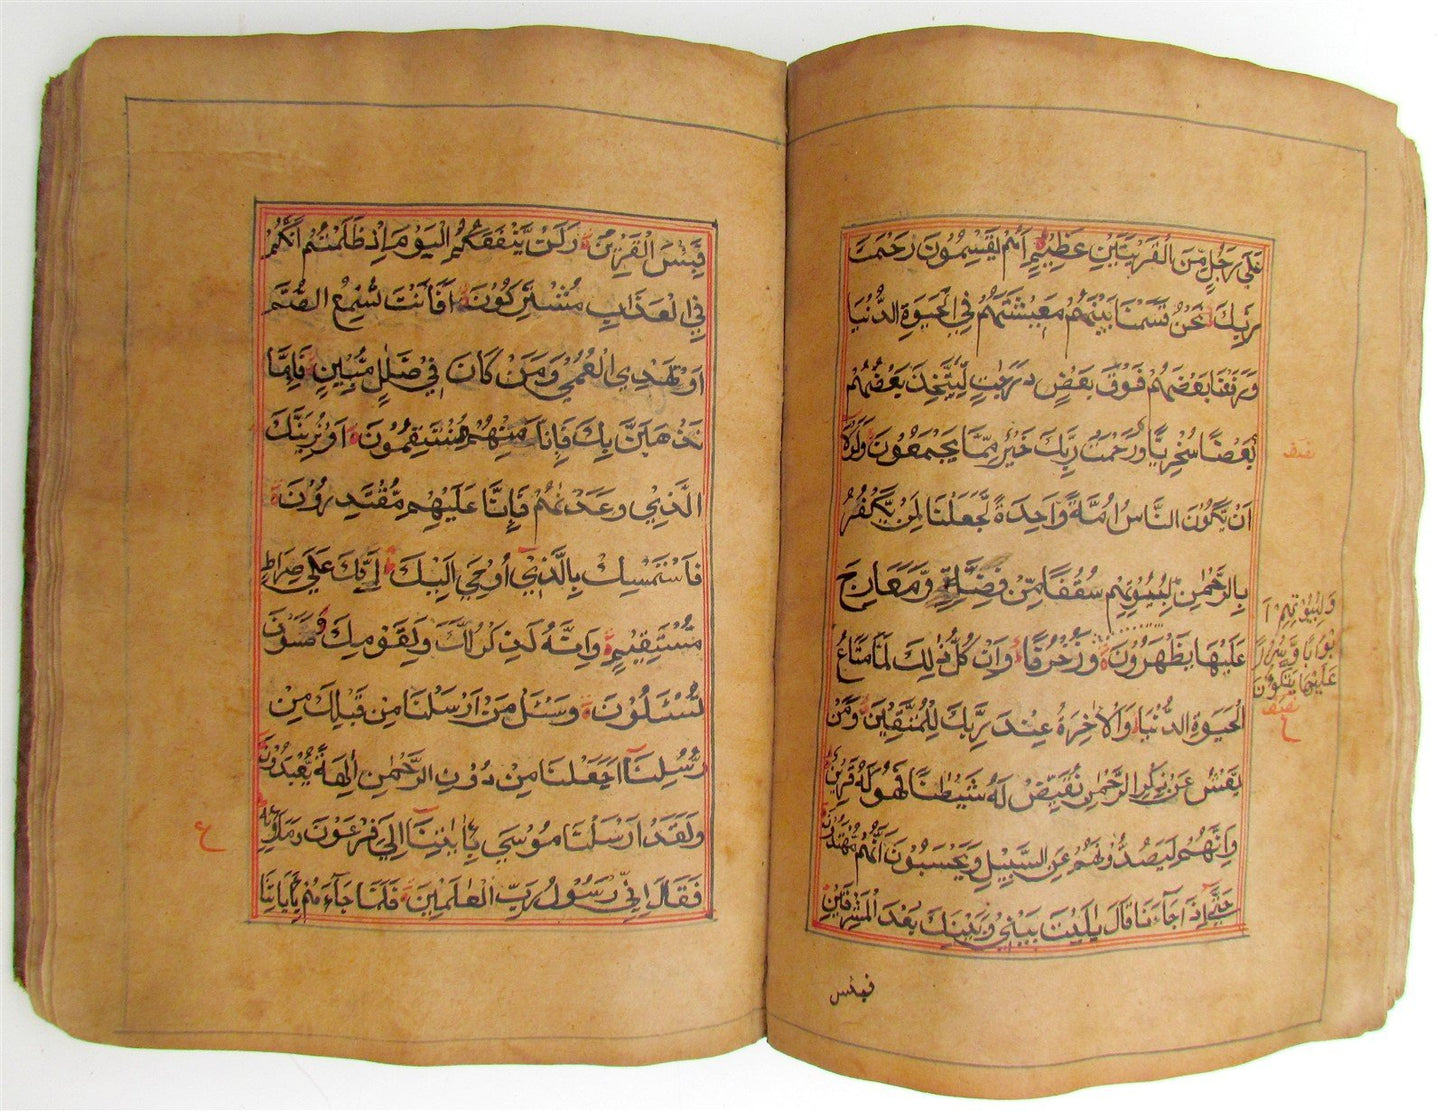 عَلَى رَجُلٍ مِّنَ الْقَرْيَتَيْنِ عَظِيْمٍ اَهُمْ يَقْسِمُوْنَ رَحْمَتَ
رَبِّكَ نَحْنُ قَسَمْنَا بَيْنَهُمْ مَعِيْشَتَهُمْ فِي الْحَيٰوةِ الدُّنْيَا
وَرَفَعْنَا بَعْضَهُمْ فَوْقَ بَعْضٍ دَرَجٰتٍ لِّيَتَّخِذَ بَعْضُهُمْ
بَعْضًا سُخْرِيًّا وَرَحْمَتُ رَبِّكَ خَيْرٌ مِّمَّا يَجْمَعُوْنَ وَلَوْلَا
اَنْ يَّكُوْنَ النَّاسُ اُمَّةً وَّاحِدَةً لَّجَعَلْنَا لِمَنْ يَّكْفُرُ
بِالرَّحْمٰنِ لِبُيُوْتِهِمْ سُقُفًا مِّنْ فِضَّةٍ وَّمَعَارِجَ
عَلَيْهَا يَظْهَرُوْنَ وَزُخْرُفًا وَاِنْ كُلُّ ذٰلِكَ لَمَّا مَتَاعُ
الْحَيٰوةِ الدُّنْيَا وَالْاٰخِرَةُ عِنْدَ رَبِّكَ لِلْمُتَّقِيْنَ وَمَنْ
يَّعْشُ عَنْ ذِكْرِ الرَّحْمٰنِ نُقَيِّضْ لَهُ شَيْطٰنًا فَهُوَ لَهُ قَرِيْنٌ
وَاِنَّهُمْ لَيَصُدُّوْنَهُمْ عَنِ السَّبِيْلِ وَيَحْسَبُوْنَ اَنَّهُمْ مُّهْتَدُوْنَ
حَتّٰى اِذَا جَآءَنَا قَالَ يٰلَيْتَ بَيْنِيْ وَبَيْنَكَ بُعْدَ الْمَشْرِقَيْنِ
فبئس
وَلِبُيُوْتِهِمْ اَ
بْوَابًا وَّسُرُرًا
عَلَيْهَا يَتَّكِـُٔوْنَ
ع
فَبِئْسَ الْقَرِيْنُ وَلَنْ يَّنْفَعَكُمُ الْيَوْمَ اِذْ ظَلَمْتُمْ اَنَّكُمْ
فِي الْعَذَابِ مُشْتَرِكُوْنَ اَفَاَنْتَ تُسْمِعُ الصُّمَّ
اَوْ تَهْدِي الْعُمْيَ وَمَنْ كَانَ فِيْ ضَلٰلٍ مُّبِيْنٍ فَاِمَّا
نَذْهَبَنَّ بِكَ فَاِنَّا مِنْهُمْ مُّنْتَقِمُوْنَ اَوْ نُرِيَنَّكَ
الَّذِيْ وَعَدْنٰهُمْ فَاِنَّا عَلَيْهِمْ مُّقْتَدِرُوْنَ
فَاسْتَمْسِكْ بِالَّذِيْ اُوْحِيَ اِلَيْكَ اِنَّكَ عَلٰى صِرَاطٍ
مُّسْتَقِيْمٍ وَاِنَّهُ لَذِكْرٌ لَّكَ وَلِقَوْمِكَ وَسَوْفَ
تُسْـَٔلُوْنَ وَسْـَٔلْ مَنْ اَرْسَلْنَا مِنْ قَبْلِكَ مِنْ
رُّسُلِنَا اَجَعَلْنَا مِنْ دُوْنِ الرَّحْمٰنِ اٰلِهَةً يُّعْبَدُوْنَ
وَلَقَدْ اَرْسَلْنَا مُوْسٰى بِاٰيٰتِنَا اِلٰى فِرْعَوْنَ وَمَلَا۟ئِهِ
فَقَالَ اِنِّيْ رَسُوْلُ رَبِّ الْعٰلَمِيْنَ فَلَمَّا جَآءَهُمْ بِاٰيَاتِنَا
ع